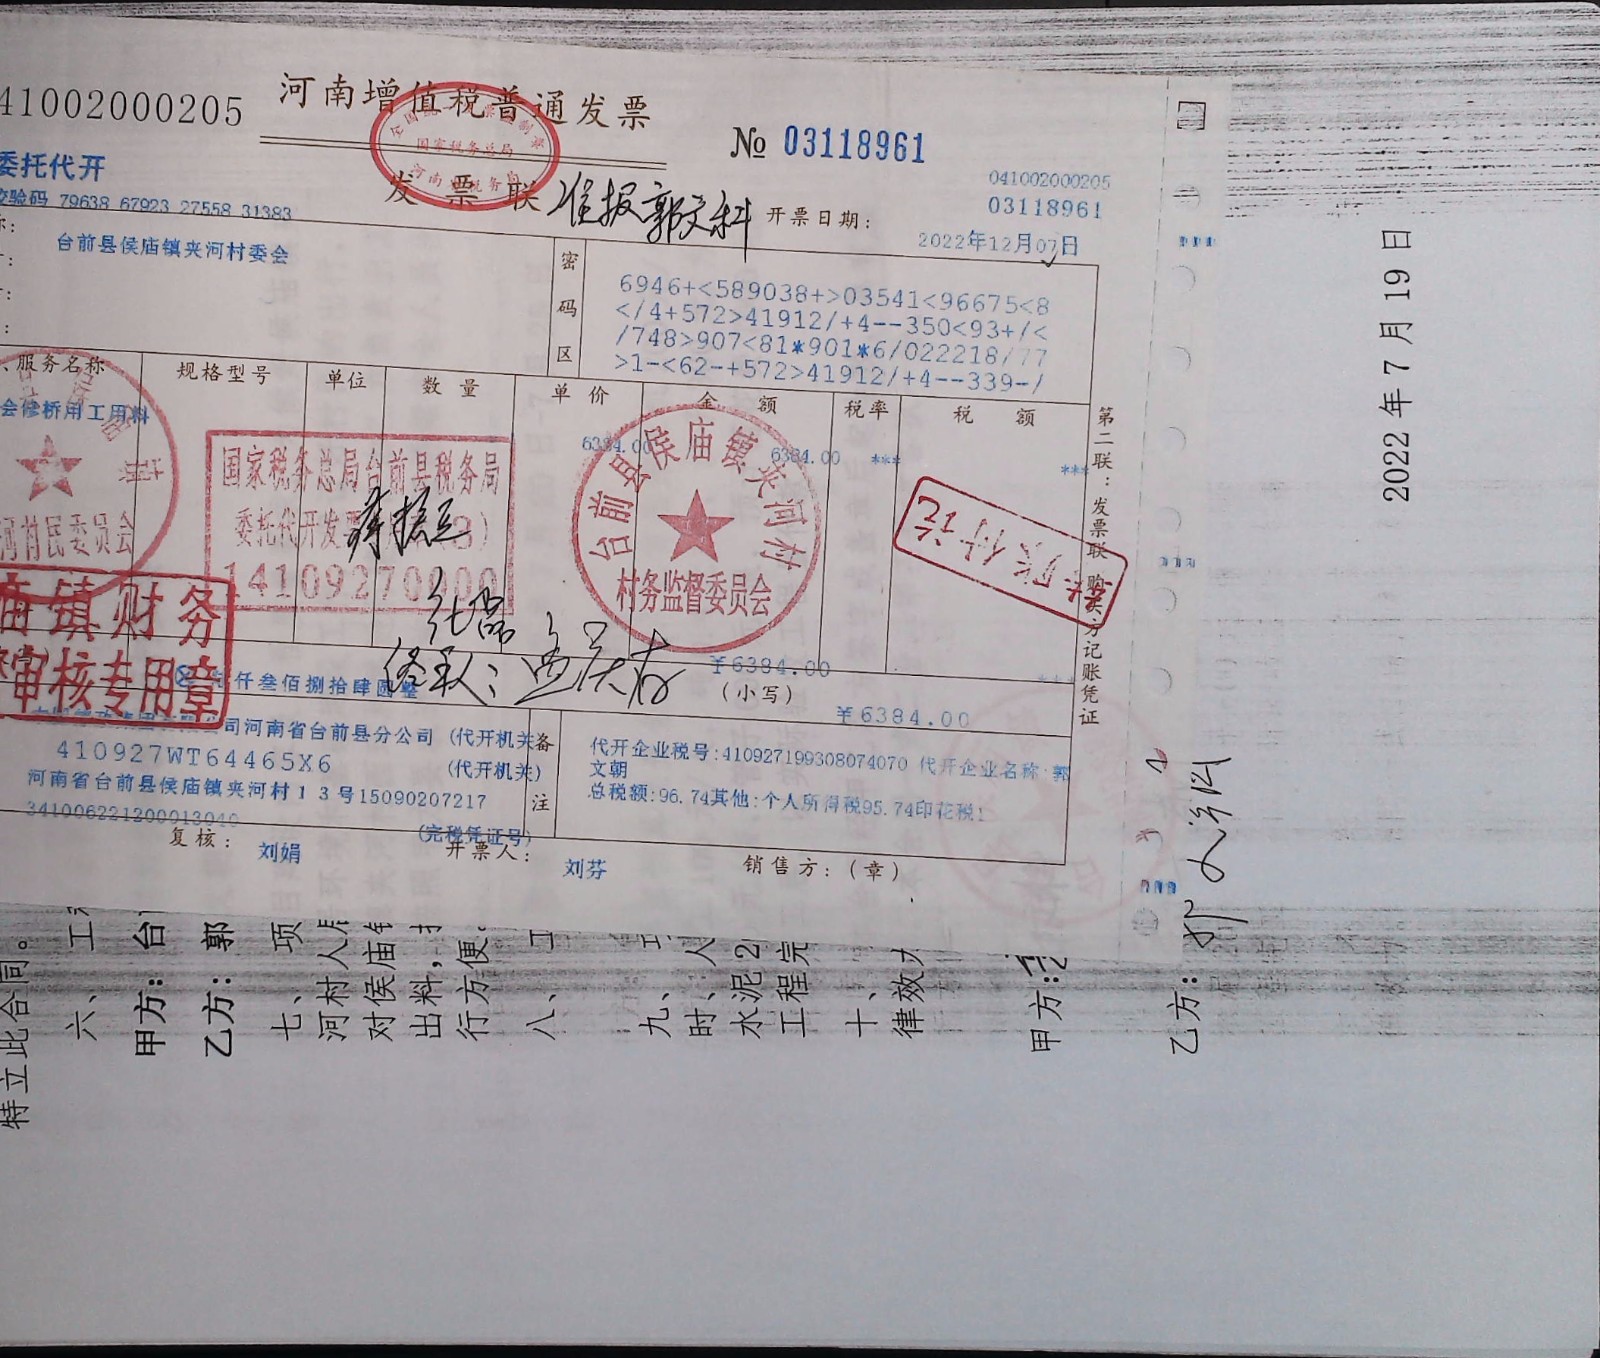 41002000205
河南增值税普通发票
№ 03118961
国家税务总局
041002000205
03118961
委托代开
发票联
准报 郭文科
开票日期:
2022年12月07日
校验码 79638 67923 27558 31383
台前县侯庙镇夹河村委会
密码区
6946+<589038+>03541<96675<8
</4+572>41912/+4--350<93+/<
/748>907<81*901*6/022218/77
>1-<62-+572>41912/+4--339-/
服务名称
规格型号
单位
数量
单价
金额
税率
税额
会修桥用工用料
6384.00
6384.00
***
***
国家税务总局台前县税务局
委托代开发票
台前县侯庙镇夹河村
村务监督委员会
河村民委员会
庙镇财务
审核专用章
¥6384.00
仟叁佰捌拾肆圆整
(小写)
¥6384.00
***
第二联:发票联 购买方记账凭证
公司河南省台前县分公司 (代开机关)
410927WT64465X6 (代开机关)
河南省台前县侯庙镇夹河村13号15090207217
341006221200013040 (完税凭证号)
备注
代开企业税号:410927199308074070 代开企业名称:郭
文朝
总税额:96.74其他:个人所得税95.74印花税1
复核:
刘娟
开票人:
刘芬
销售方:(章)
特立此合同。
六、
甲方:台
乙方:郭
七、项
河村人居
对侯庙
出料,
行方便。
八、工
九、
时、人
水泥2
工程完
十、
律效力
甲方:
乙方:
2022年7月19日